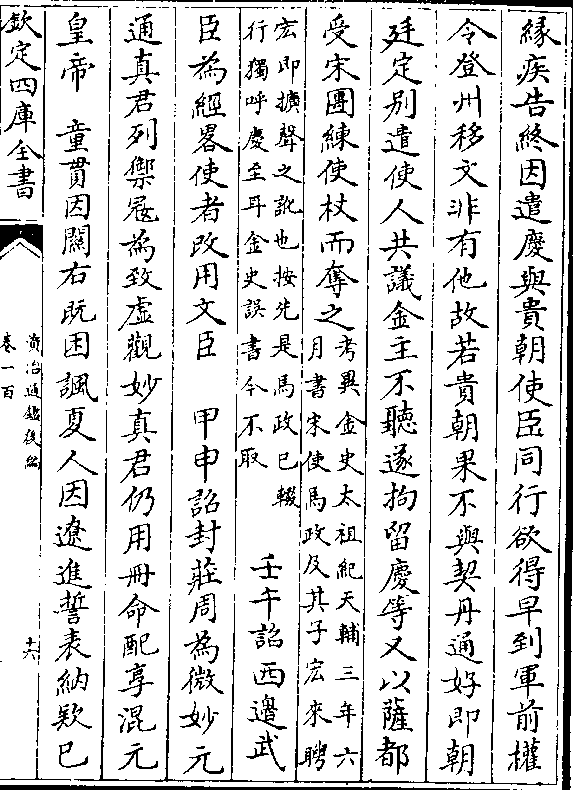 緣疾告終因遣慶與貴朝使臣同行欲得早到軍前權
令登州移文非有他故若貴朝果不與契丹通好即朝
廷定别遣使人共議金主不聽遂拘留慶等又以薩都
受宋團練使杖而奪之
考異金史太祖紀天輔三年六
月書宋使馬政及其子宏來聘
宏即擴聲之訛也按先是馬政已輟
行獨呼慶至耳金史誤書今不取
壬午詔西邊武
臣為經畧使者改用文臣　甲申詔封莊周為微妙元
通真君列禦冦為致虚觀妙真君仍用冊命配享混元
皇帝　童貫因關右既困諷夏人因遼進誓表納欵已
欽定四庫全書
資治通鑑後編
卷一百
十六